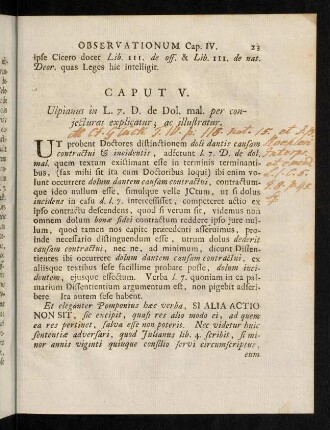 OBSERVATIONUM Cap. IV. 23
ipse Cicero docet Lib. III. de off. & Lib. III. de nat.
Deor. quas Leges hic intelligit.
CAPUT V.
Ulpianus in L. 7. D. de Dol. mal. per con-
jecturas explicatur; ac illustratur.
UT probent Doctores distinctionem doli dantis causam
contractui & incidentis, adferunt l. 7. D. de dol.
mal. quem textum existimant esse in terminis terminanti-
bus, (fas mihi sit ita cum Doctoribus loqui) ibi enim vo-
lunt occurrere dolum dantem causam contractui, contractum-
que ideo nullum esse, simulque velle JCtum, ut si dolus
incidens in casu d. l. 7. intercessisset, competeret actio ex
ipso contractu descendens, quod si verum sit, videmus non
omnem dolum bonæ fidei contractum reddere ipso jure nul-
lum, quod tamen nos capite præcedenti asseruimus, pro-
inde necessario distinguendum esse, utrum dolus dederit
causam contractui, nec ne, ad minimum, dicunt Dissen-
tientes ibi occurrere dolum dantem causam contractui, ex
aliisque textibus sese facillime probare posse, dolum inci-
dentem, ejusque effectum. Verba l. 7. quoniam in ea pal-
marium Dissentientium argumentum est, non pigebit adscri-
bere Ita autem sese habent.
Et eleganter Pomponius hæc verba, SI ALIA ACTIO
NON SIT, sic excipit, quasi res alio modo ei, ad quem
ea res pertinet, salva esse non poterit. Nec videtur huic
sententiæ adversari, quod Julianus lib. 4. scribit, si mi-
nor annis viginti quinque consilio servi circumscriptus,
eum